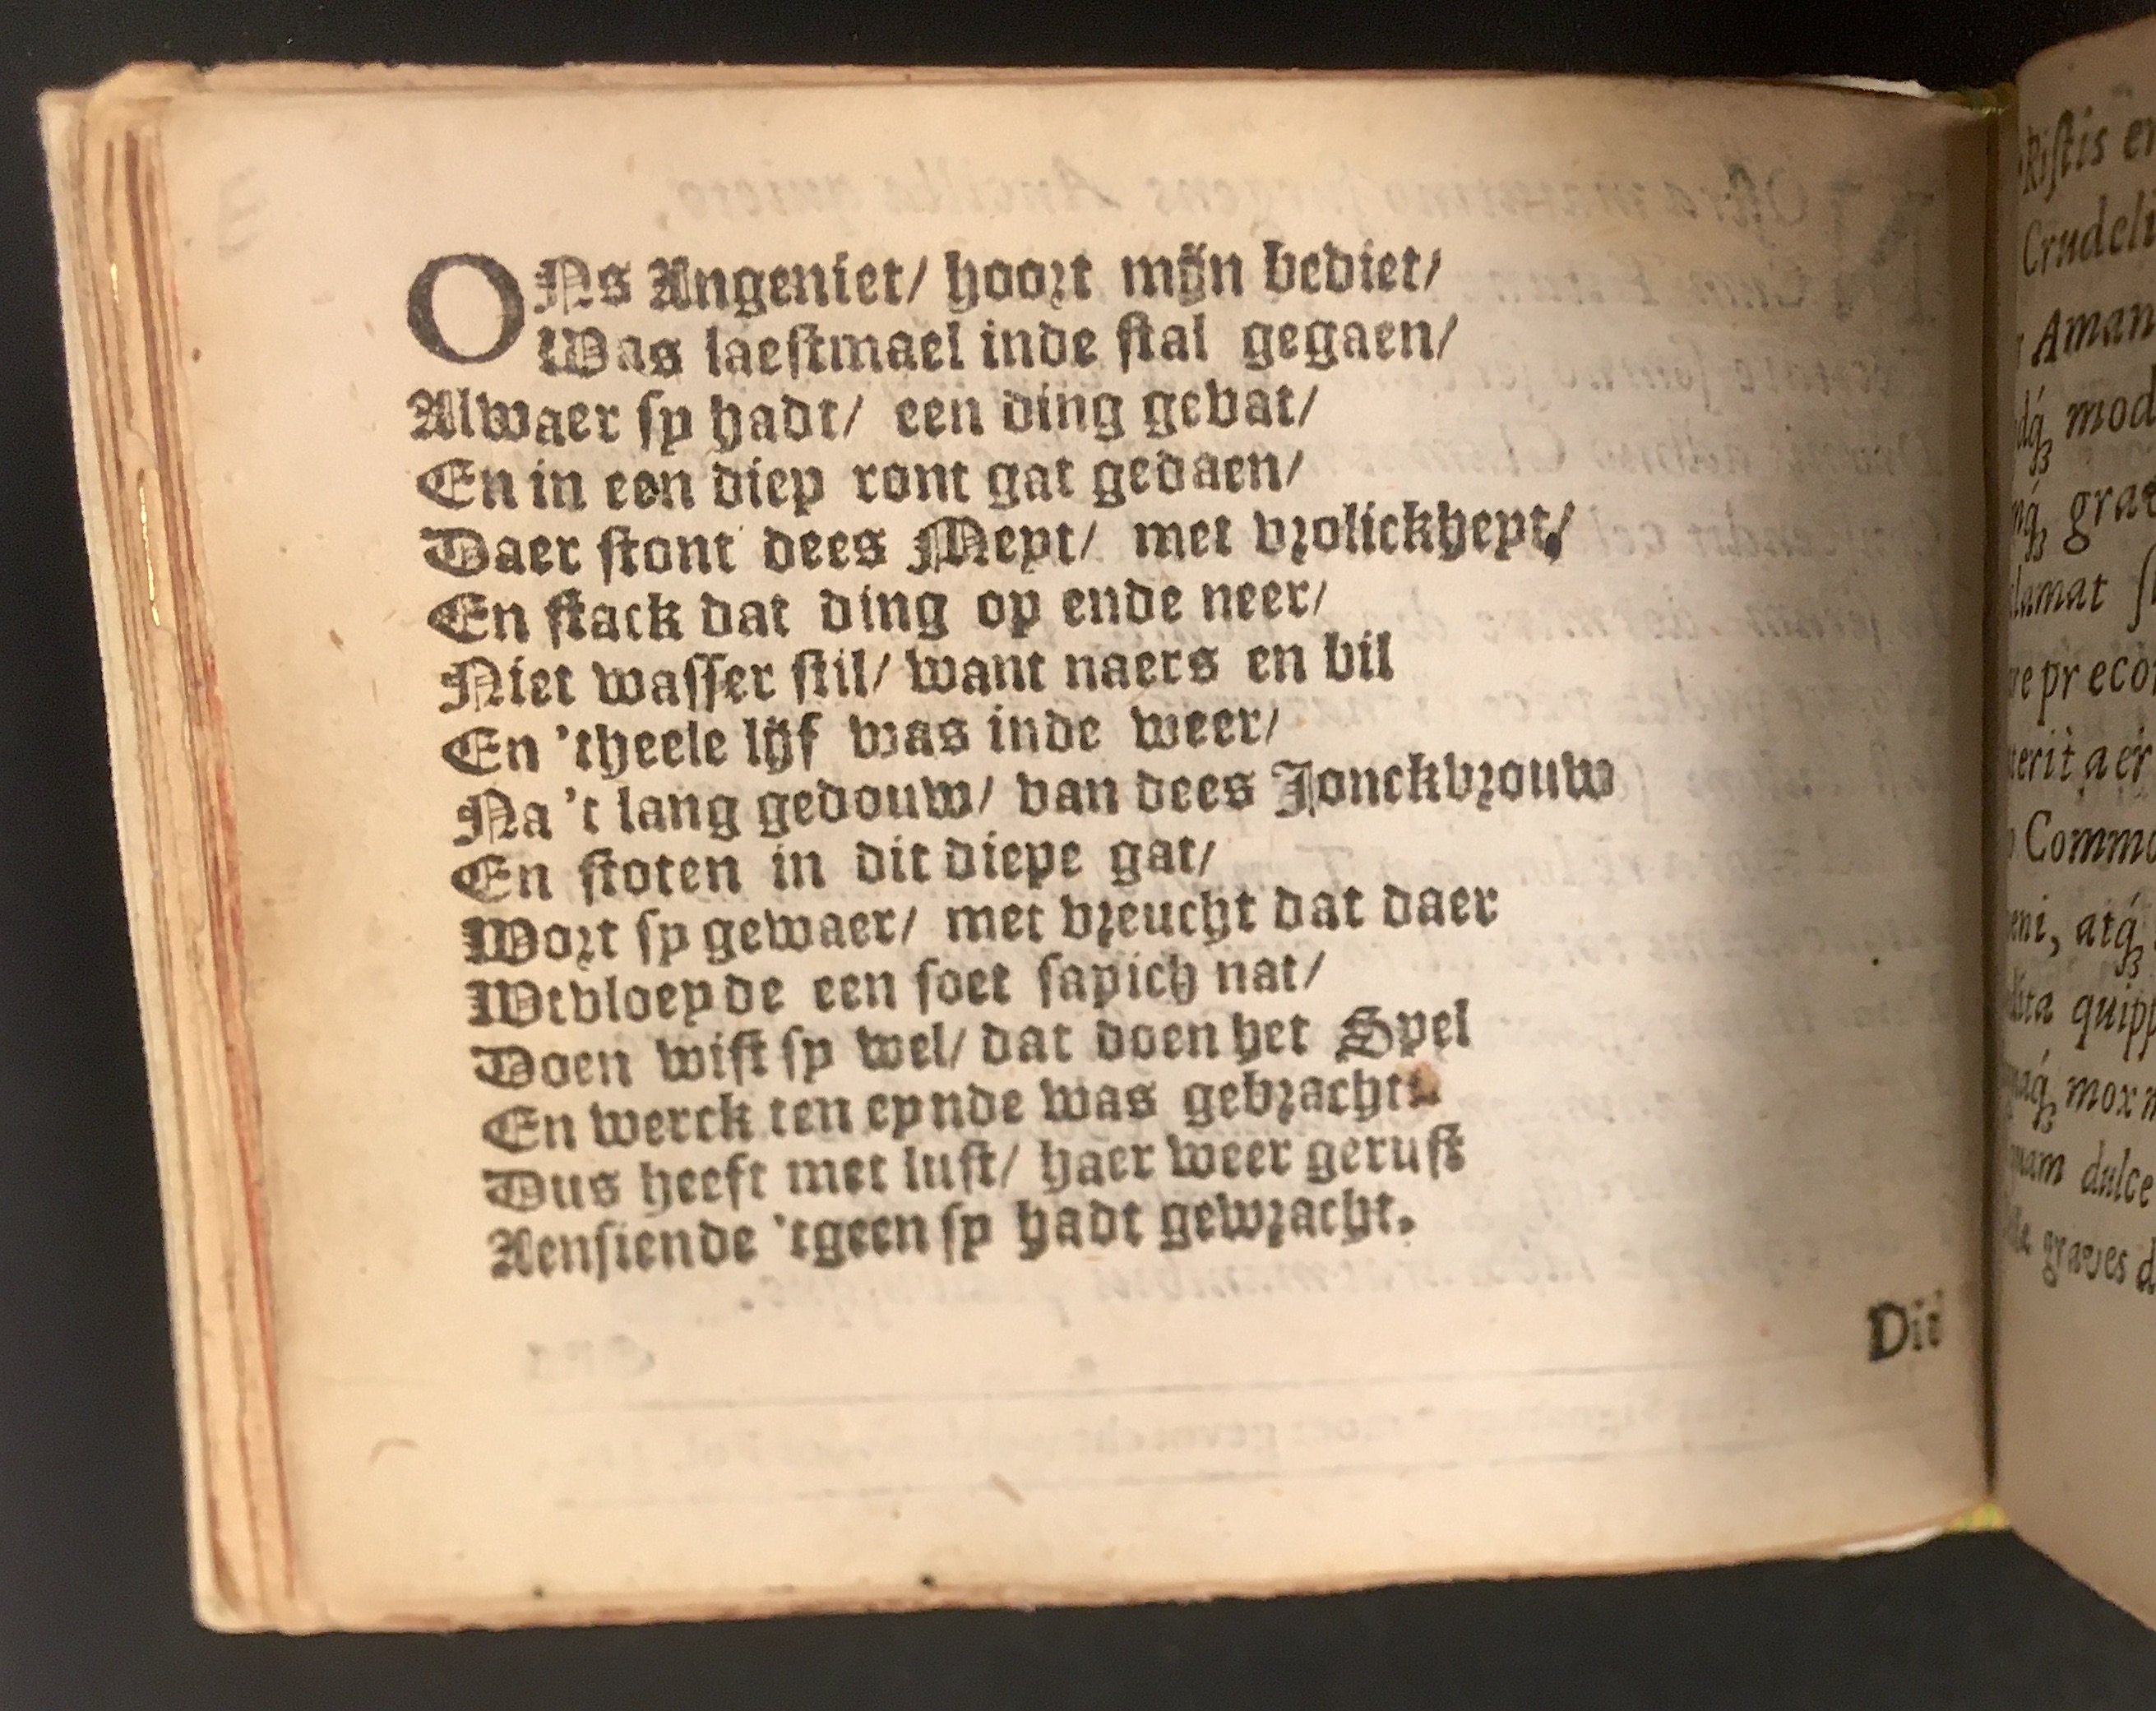 ONs Angeniet/ hoort mijn bediet/
Was laeſtmael inde ſtal gegaen/
Alwaer ſy hadt/ een ding gevat/
En in een diep ront gat gedaen/
Daer ſtont dees Meyt/ met vrolickheyt/
En ſtack dat ding op ende neer/
Niet waſſer ſtil/ want naers en bil
En 'theele lijf was inde weer/
Na 't lang gedouw/ van dees Jonckvrouw
En ſtoten in dit diepe gat/
Wort ſy gewaer/ met vreucht dat daer
Wtvloeyde een ſoet ſapich nat/
Doen wiſt ſy wel/ dat doen het Spel
En werck ten eynde was gebracht
Dus heeft met luſt/ haer weer geruſt
Aenſiende 'tgeen ſy hadt gewracht.
Dit
Riſtis
Crudeli
Aman
mod
grat
lamat
Commo
atq́ꝫ
mox
dulce
graves